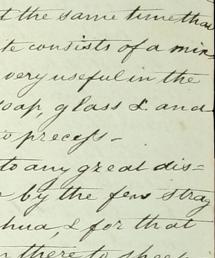 t the same time that
te consists of a min
very useful in the
soap, glass &. and
to precess -
to any great dis-
by the few strag
hua, & for that
there to